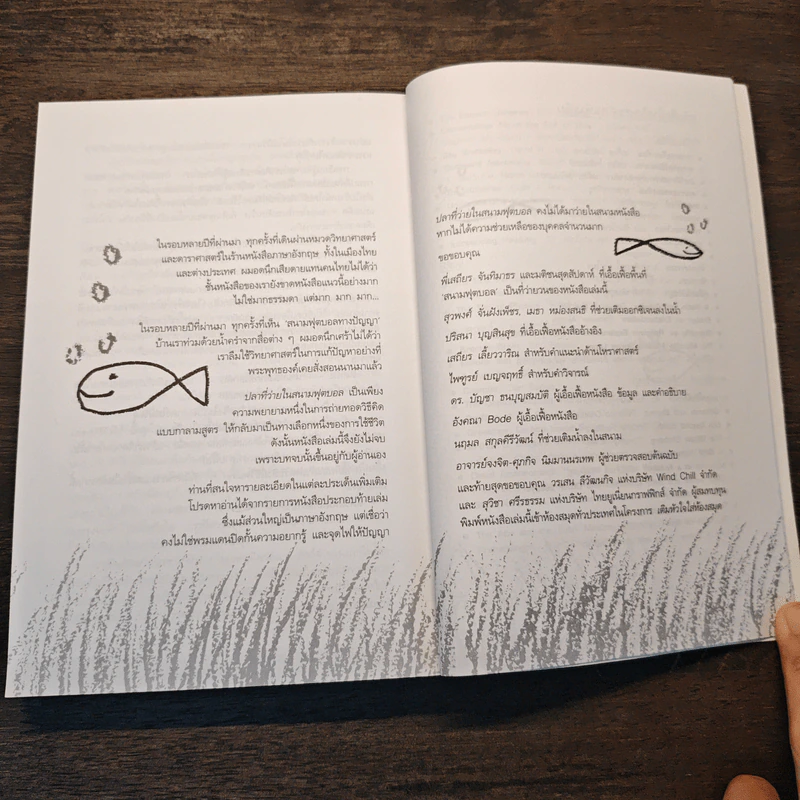 ในรอบหลายปีที่ผ่านมา ทุกครั้งที่เดินผ่านหมวดวิทยาศาสตร์
และดาราศาสตร์ในร้านหนังสือภาษาอังกฤษ ทั้งในเมืองไทย
และต่างประเทศ ผมอดนึกเสียดายแทนคนไทยไม่ได้ว่า
ชั้นหนังสือของเรายังขาดหนังสือแนวนี้อย่างมาก
ไม่ใช่มากธรรมดา แต่มาก มาก มาก...
ในรอบหลายปีที่ผ่านมา ทุกครั้งที่เห็น 'สนามฟุตบอลทางปัญญา'
บ้านเราท่วมด้วยน้ำคร่ำจากสื่อต่าง ๆ ผมอดนึกเศร้าไม่ได้ว่า
เราลืมใช้วิทยาศาสตร์ในการแก้ปัญหาอย่างที่
พระพุทธองค์เคยสั่งสอนนานมาแล้ว
ปลาที่ว่ายในสนามฟุตบอล เป็นเพียง
ความพยายามหนึ่งในการถ่ายทอดวิธีคิด
แบบกาลามสูตร ให้กลับมาเป็นทางเลือกหนึ่งของการใช้ชีวิต
ดังนั้นหนังสือเล่มนี้จึงยังไม่จบ
เพราะบทจบนั้นขึ้นอยู่กับผู้อ่านเอง
ท่านที่สนใจหารายละเอียดในแต่ละประเด็นเพิ่มเติม
โปรดหาอ่านได้จากรายการหนังสือประกอบท้ายเล่ม
ซึ่งแม้ส่วนใหญ่เป็นภาษาอังกฤษ แต่เชื่อว่า
คงไม่ใช่พรมแดนปิดกั้นความอยากรู้ และจุดไฟให้ปัญญา
ปลาที่ว่ายในสนามฟุตบอล คงไม่ได้มาว่ายในสนามหนังสือ
หากไม่ได้ความช่วยเหลือของบุคคลจำนวนมาก
ขอขอบคุณ
พี่เสถียร จันทิมาธร และมติชนสุดสัปดาห์ ที่เอื้อเฟื้อพื้นที่
'สนามฟุตบอล' เป็นที่ว่ายวนของหนังสือเล่มนี้
สุวพงศ์ จั่นฝังเพ็ชร, เมธา หม่องสนธิ ที่ช่วยเติมออกซิเจนลงในน้ำ
ปริสนา บุญสินสุข ที่เอื้อเฟื้อหนังสืออ้างอิง
เสถียร เลี้ยววาริณ สำหรับคำแนะนำด้านโหราศาสตร์
ไพฑูรย์ เบญจฤทธิ์ สำหรับคำวิจารณ์
ดร. บัญชา ธนบุญสมบัติ ผู้เอื้อเฟื้อหนังสือ ข้อมูล และคำอธิบาย
อังคณา Bode ผู้เอื้อเฟื้อหนังสือ
นฤมล สกุลคีรีวัฒน์ ที่ช่วยเติมน้ำลงในสนาม
อาจารย์จงจิต-ศุภกิจ นิมมานนรเทพ ผู้ช่วยตรวจสอบต้นฉบับ
และท้ายสุดขอขอบคุณ วรเสน ลีวัฒนกิจ แห่งบริษัท Wind Chill จำกัด
และ สุวิชา ศรีรธรรม แห่งบริษัท ไทยยูเนี่ยนกราฟฟิกส์ จำกัด ผู้สมทบทุน
พิมพ์หนังสือเล่มนี้เข้าห้องสมุดทั่วประเทศในโครงการ เติมหัวใจใส่ห้องสมุด